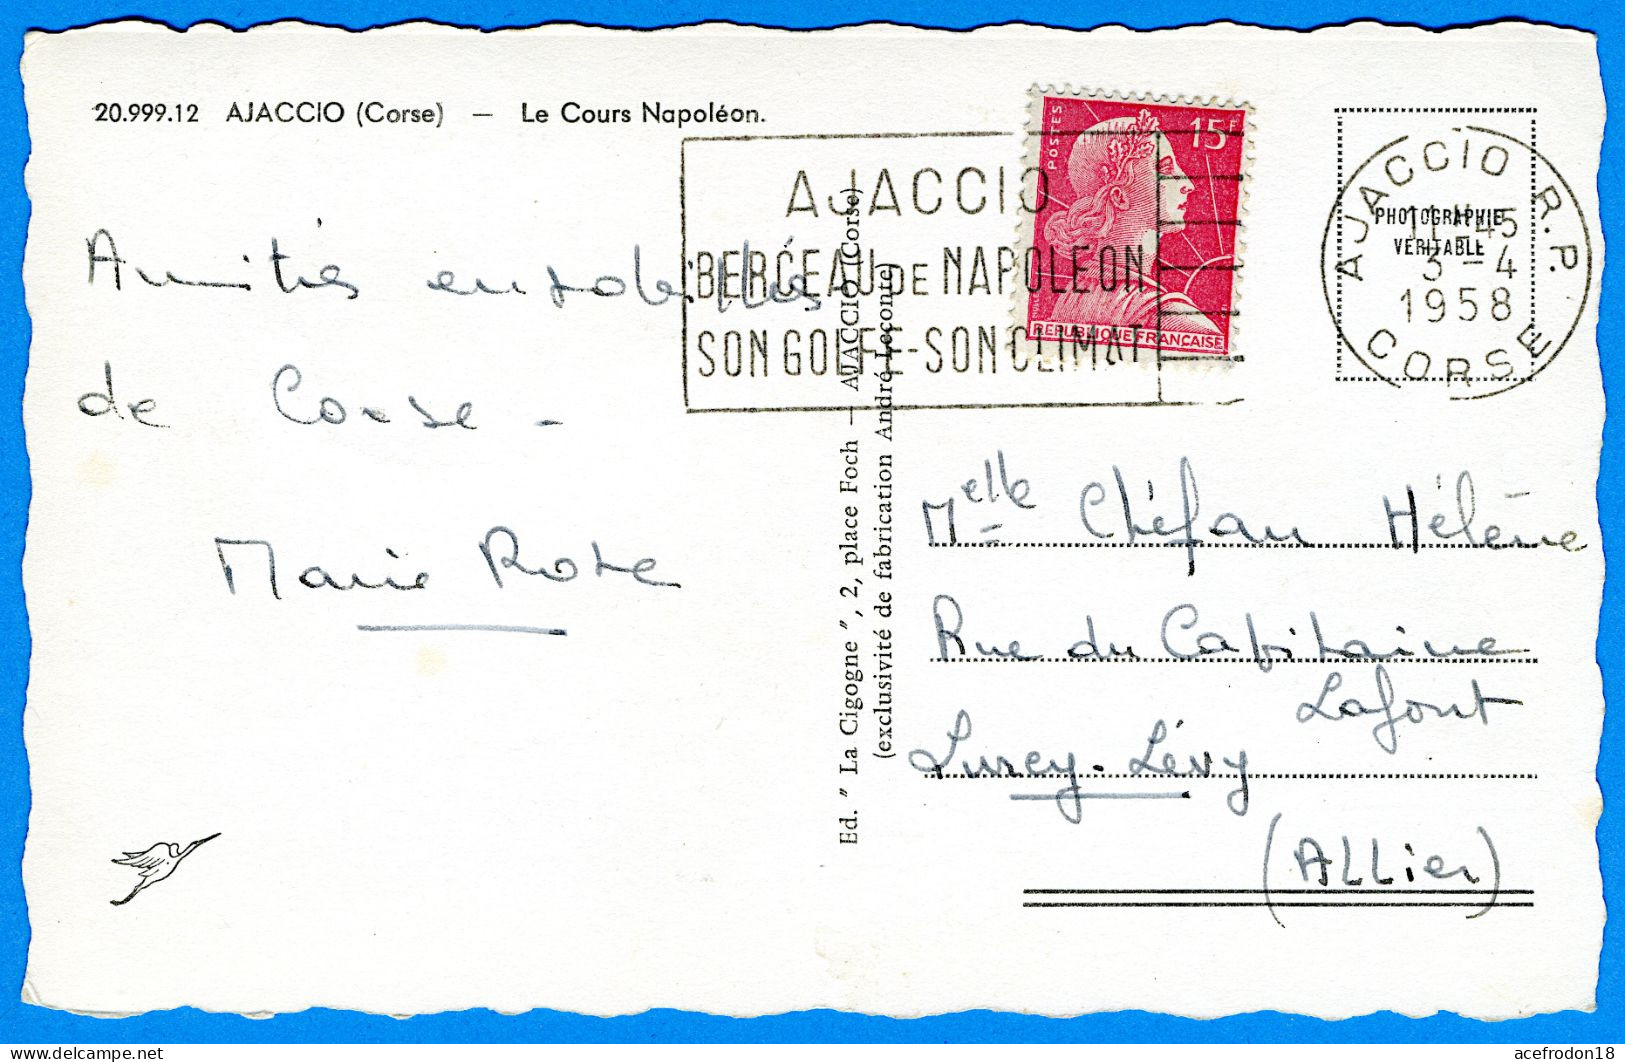 20.999.12 AJACCIO (Corse) — Le Cours Napoléon.
Amitiés ensoleillées
de Corse -
Marie Rose
AJACCIO
BERCEAU DE NAPOLEON
SON GOLFE - SON CLIMAT
POSTES
15F
REPUBLIQUE FRANÇAISE
AJACCIO R.P.
11H45
3 - 4
1958
CORSE
PHOTOGRAPHIE
VÉRITABLE
Ed. " La Cigogne ", 2, place Foch — AJACCIO (Corse)
(exclusivité de fabrication André Leconte)
Melle Chéfan Hélène
Rue du Capitaine
Lafont
Lurcy-Lévy
(ALLier)
acefrodon18